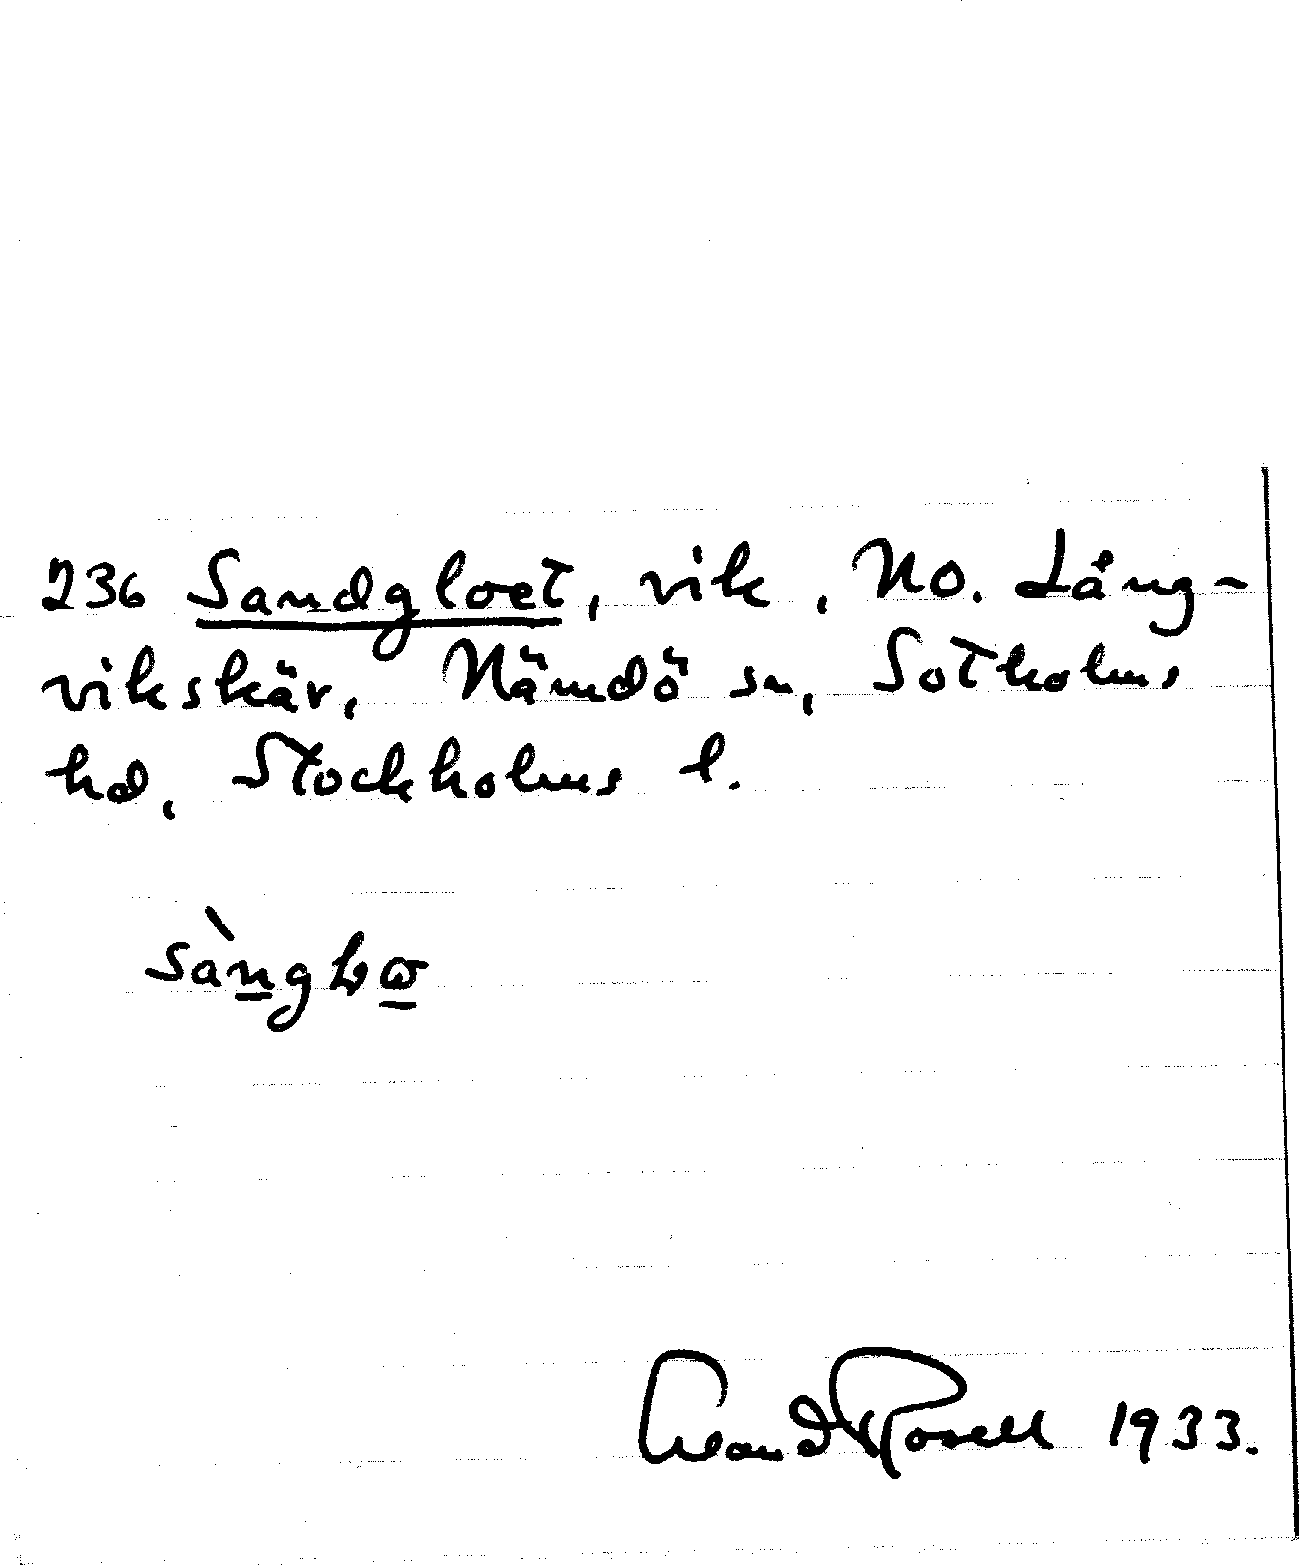 236 Sandgloet, vik, NO. Lång-
vikskär, Nämdö sn, Sotholms
hd, Stockholms l.
Erland Rosell 1933.